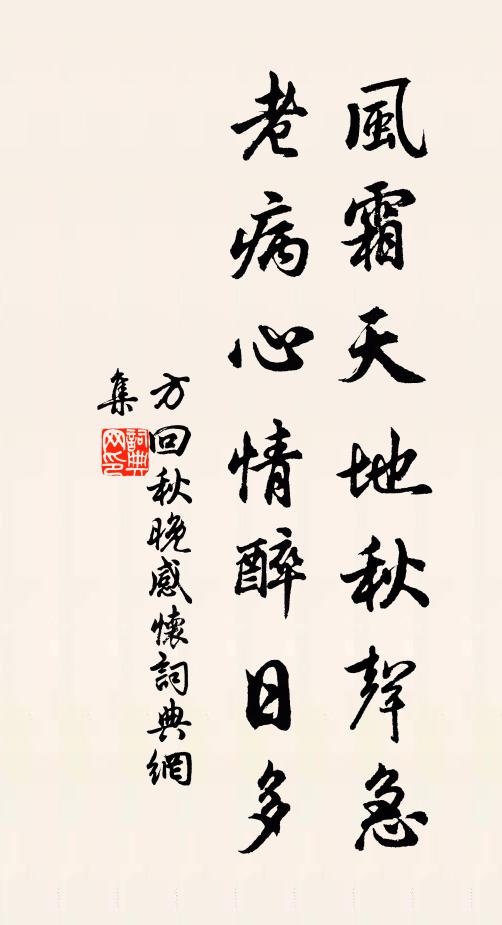 風霜天地秋聲急
老病心情醉日多
方回秋晚感懷詞典網
集
詞典
网印